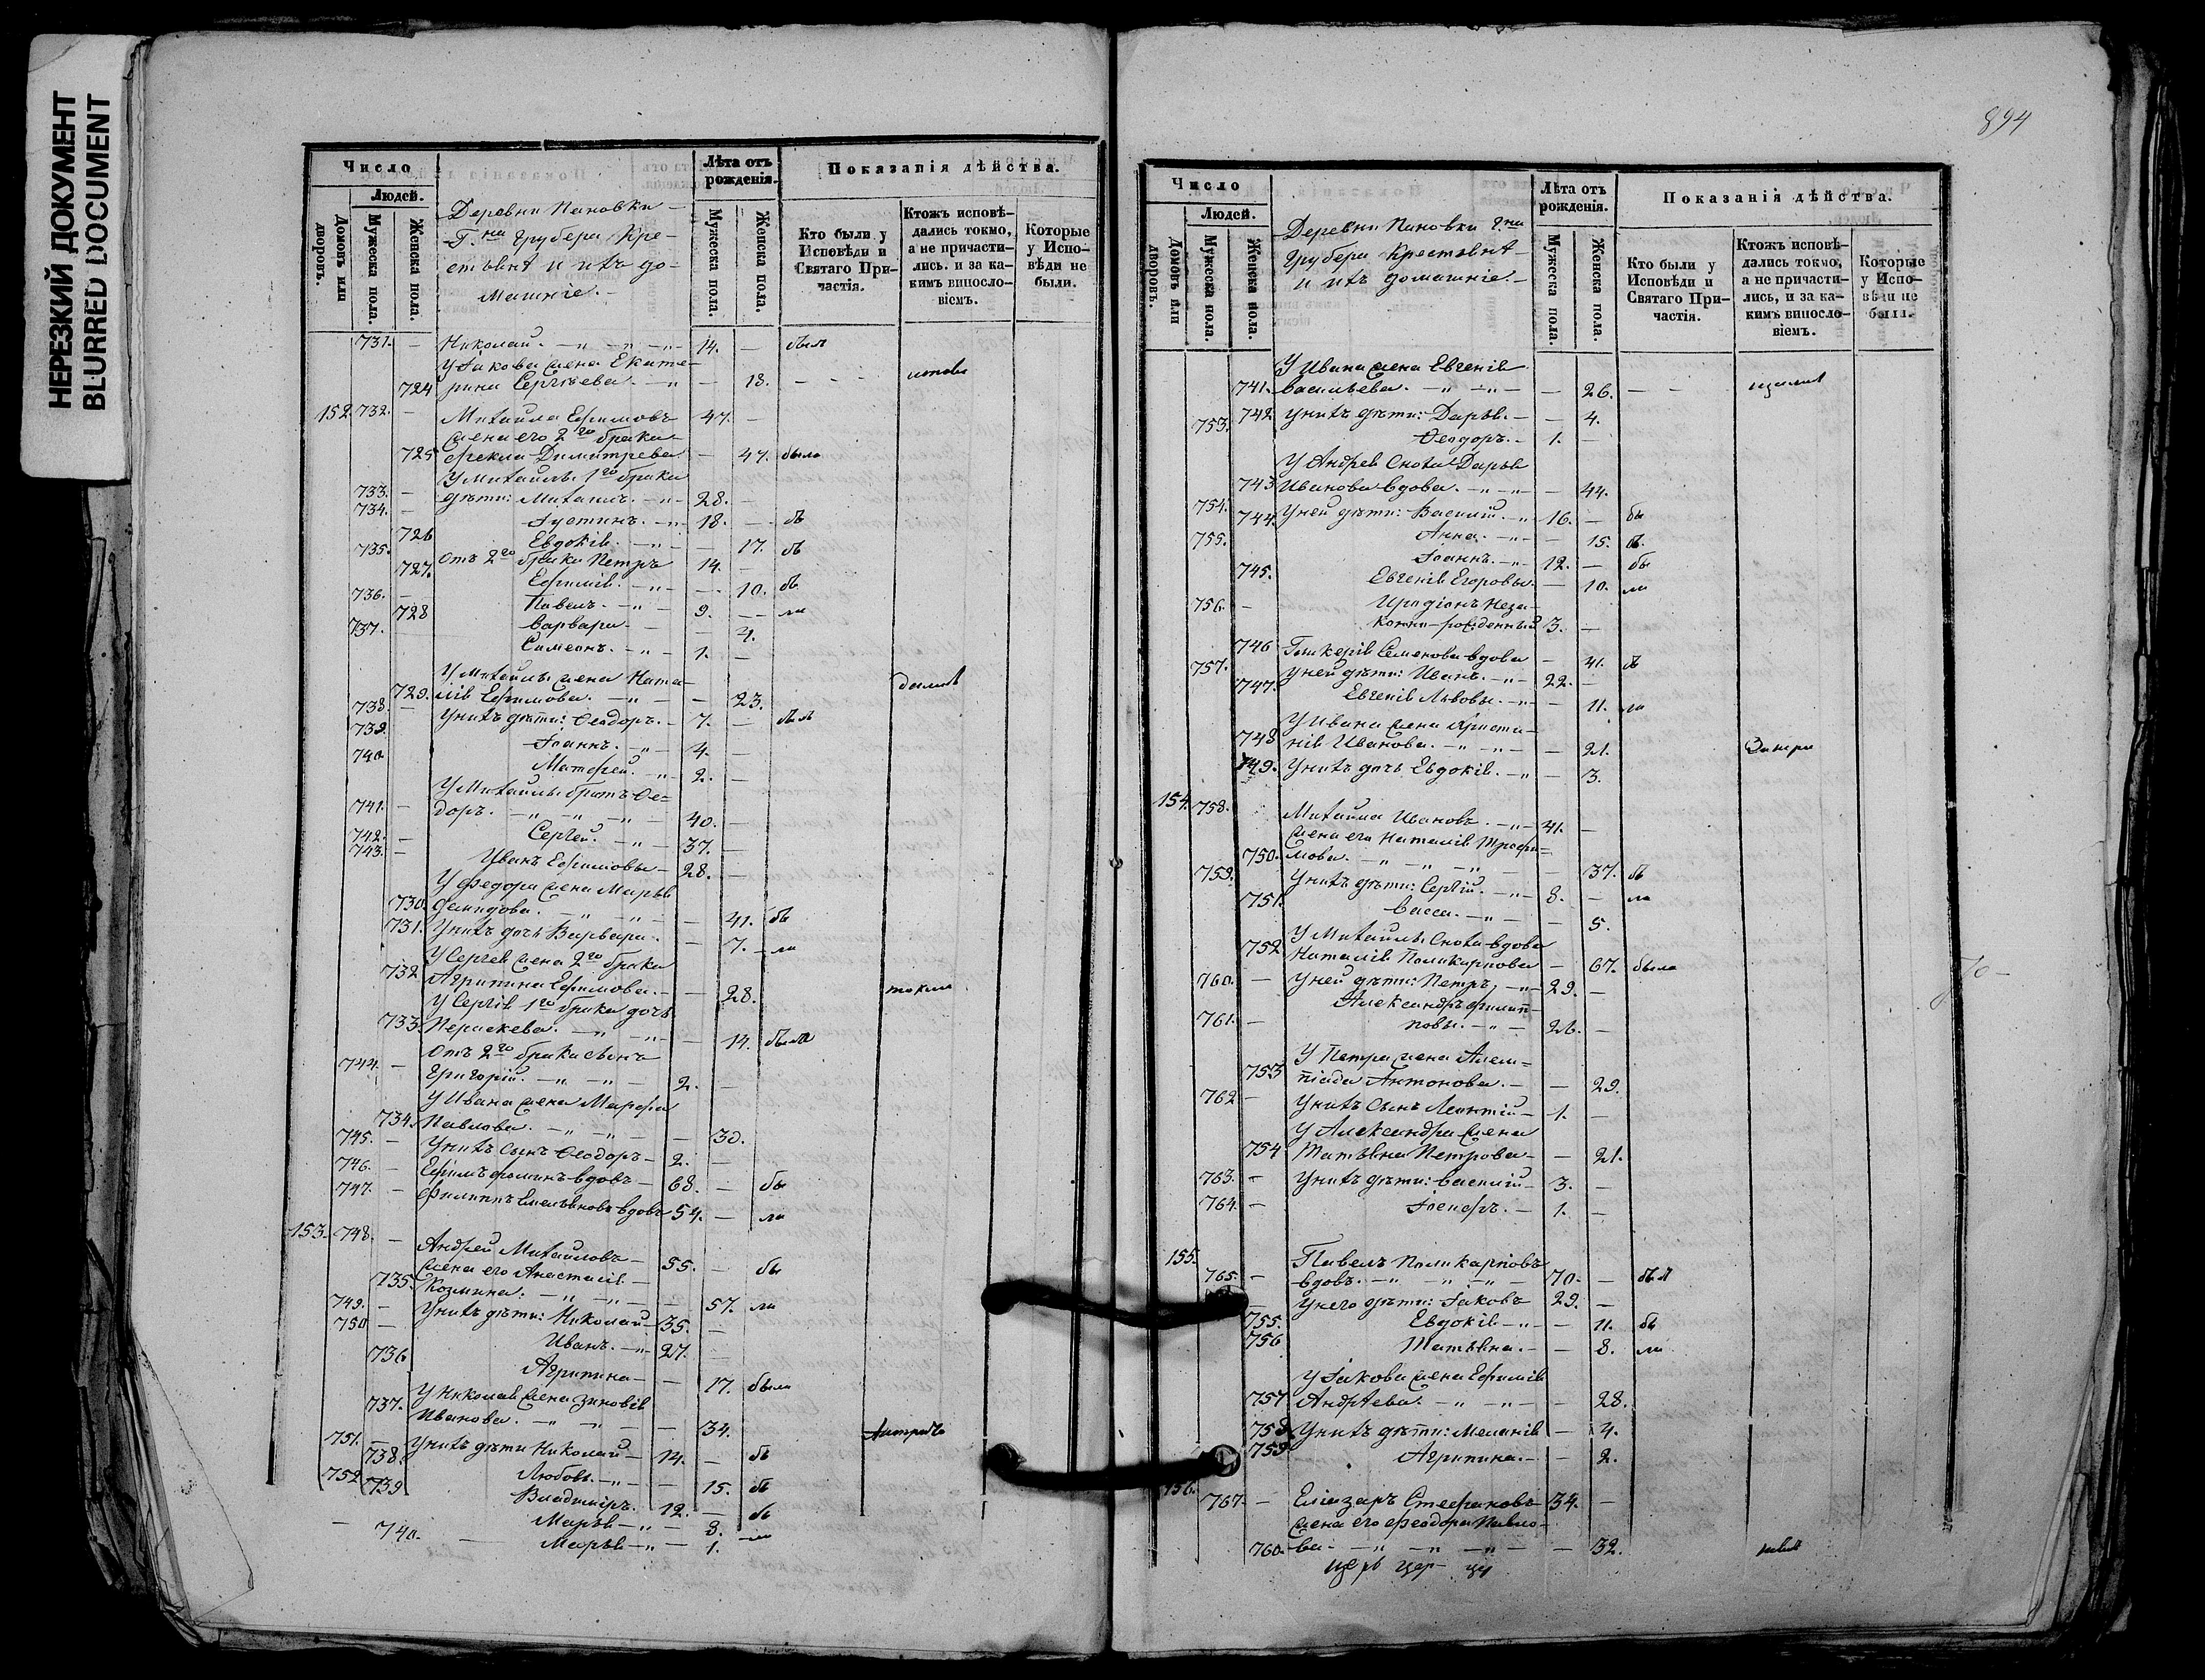 НЕРЕЗКИЙ ДОКУМЕНТ
BLURRED DOCUMENT
Число
Людей.
Домовъ или дворовъ.
Мужеска пола.
Женска пола.
Деревни Пановки
Г.на Грубера Кре-
стьянѣ и ихъ до-
машніе.
Лѣта отъ рожденія.
Мужеска пола.
Женска пола.
Показанія дѣйства.
Кто были у Исповѣди и Святаго При-частія.
Ктожъ исповѣ-дались токмо, а не причасти-лись. и за ка-кимъ винословіемъ.
Которые у Испо-вѣди не были.
731. — Николай. — 14. — былъ
У Іакова жена Екате-
724 рина Сергѣева. — — 18.
152. 732. — Михайла Ефимовъ 47. —
жена его 2го брака
725 Ѳекла Димитрева — 47. была
У Михайлы 1го брака
733. — дѣти: Михаилъ. — 28. —
734. — Іустинъ. — 18. — бы
726 Евдокія. — — 17. бы
735. Отъ 2го брака Петръ 14. —
727. Ефимія. — — 10. бы
736. — Павелъ. — 9. — ли
728 Варвара. — 4.
737. Симеонъ. — 1. —
У Михайлы жена Ната-
729. лія Ефимова. — — 23.
738. — У нихъ дѣти: Ѳеодоръ. — 7. —
739. Іоаннъ. — 4. —
740 Матѳей. — 2. —
У Михайлы братъ Ѳе=
741. — доръ. — 40. —
742. — Сергей. — 37. —
743. — Иванъ Ефимовы — 28. —
У Федора жена Марья
730. Демидова. — — 41. бы
731. У нихъ дочь Варвара. — 7. — ли
У Сергея жена 2го брака
732 Агрипина Ефимова. — — 28.
У Сергія 1го брака дочь
733. Параскева. — — 14. была
Отъ 2го брака сынъ
744. — Григорій. — 2. —
У Ивана жена Марѳа
734. Павлова. — — 30.
745. — У нихъ сынъ Ѳеодоръ — 2. —
746. — Ефимъ Фоминъ вдовъ — 68. — бы
747. — Филиппъ Емельяновъ вдовъ 54. — ли
153. 748. — Андрей Михайловъ — 55. — бы
жена его Анастасія —
735. Козмина. — — 57. ли
749. — У нихъ дѣти: Николай — 35. —
750 — Иванъ. — 27. —
736. Агрипина — — 17. была
У Николая жена Зиновія
737. Иванова. — — 34.
751. — У нихъ дѣти Николай — 14. — бы
738. Любовь. — — 15. бы
752 Владиміръ. 12. — бы
739 Марья — 8. — ли
740. — Марья — 1.
894
Число
Людей.
Домовъ или дворовъ.
Мужеска пола.
Женска пола.
Деревни Пановки Г.на
Грубера Крестьянѣ
и ихъ домашніе.
Лѣта отъ рожденія.
Мужеска пола.
Женска пола.
Показанія дѣйства.
Кто были у Исповѣди и Святаго При-частія.
Ктожъ исповѣ-дались токмо, а не причасти-лись, и за ка-кимъ винословіемъ.
Которые у Испо-вѣди не были.
У Ивана жена Евгенія
741. Васильева. — — 26.
742 У нихъ дѣти: Дарья. — — 4.
753. Ѳеодоръ. — 1. —
У Андрея сноха Дарья
743 Иванова вдова. — — 44.
754. У ней дѣти: Василій. — 16. — бы
744. Анна. — — 15. бы
755. Іоаннъ. — 12. — бы
745. Евгенія Егоровы. — 10. ли
756. — Иродіонъ Неза-
конно-рожденный 3. —
746 Гликерія Семенова вдова — 41. бы
757. У ней дѣти: Иванъ. — 22. —
747. Евгенія Львовы. — — 11. ли
У Ивана жена Христи-
748 нія Иванова. — — 21.
749. У нихъ дочь Евдокія. — — 3.
154. 758. Михайла Ивановъ. — 41. —
жена его Наталія Трофи=
750. мова. — — 37. бы
759. У нихъ дѣти: Сергій. — 8. — ли
751. Васса. — — 5.
У Михайлы сноха вдова
752 Наталія Поликарпова — 67. была
760. — У ней дѣти: Петръ, — 29. —
Александръ Филип-
761. — повы. — 26. —
У Петра жена Алим=
753 піада Антонова. — — 29.
762 — У нихъ сынъ Леонтій — 1. —
У Александра жена
754 Татьяна Петрова — — 21.
763. — У нихъ дѣти: Василій — 3. —
764. — Іосифъ. — 1. —
155. Павелъ Поликарповъ
765. — вдовъ. — 70. — былъ
— У него дѣти: Іаковъ 29. —
755. Евдокія — — 11. бы
756 Татьяна. — — 8. ли
У Іакова жена Ефимія
757 Андреева. — — 28.
758. У нихъ дѣти: Меланія — 4.
759 Агрипина. — — 2.
156. 767. — Еліазаръ Стефановъ — 34. —
жена его Ѳеодора Павло-
760. ва — — 32.